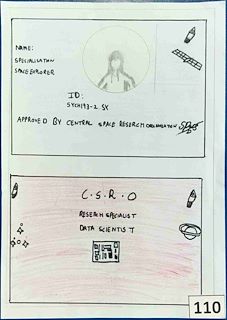 NAME:
SPECIALISATION
SPACE EXPLORER
ID:
APPROVED BY CENTRAL SPACE RESERCH ORGANISATION
C.S.R.O
RESERCH SPECIALIST
DATA SCIENTIST
110